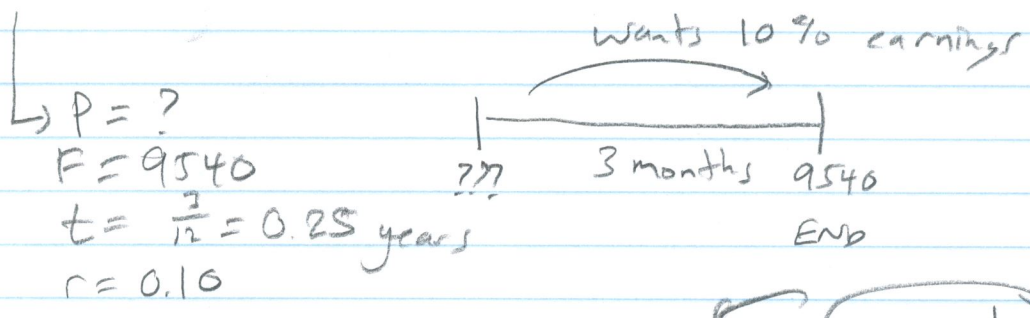 wants 10% earnings
P = ?
F = 9540
t = 3/12 = 0.25 years
r = 0.10
???
3 months
9540
END